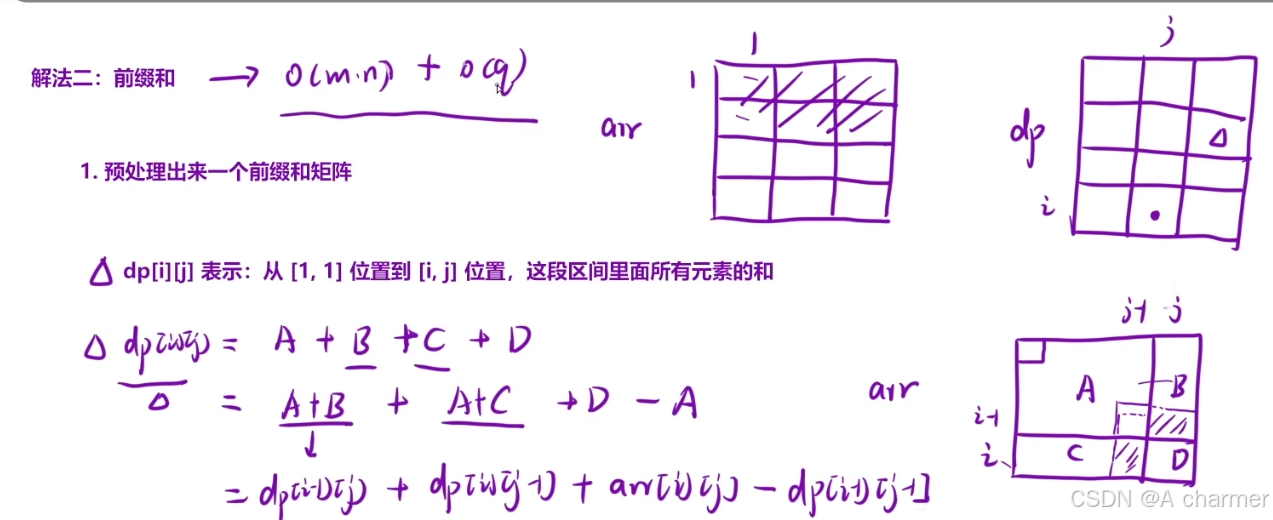 解法二：前缀和 → O(m·n) + O(q)
1
1
arr
j
dp
△
i
1. 预处理出来一个前缀和矩阵
△ dp[i][j] 表示：从 [1, 1] 位置到 [i, j] 位置，这段区间里面所有元素的和
△ dp[i][j] = A + B + C + D
△
= A+B + A+C + D - A
= dp[i-1][j] + dp[i][j-1] + arr[i][j] - dp[i-1][j-1]
arr
j-1 j
A B
i-1
i C D
CSDN @A charmer